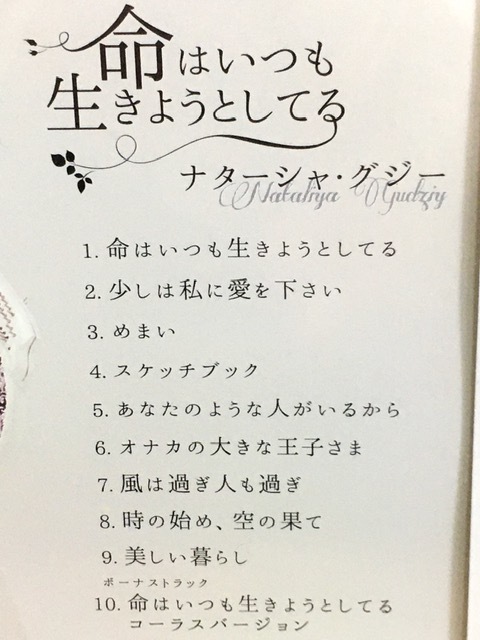 命はいつも
生きようとしてる
ナターシャ・グジー
Nataliya Gudziy
1. 命はいつも生きようとしてる
2. 少しは私に愛を下さい
3. めまい
4. スケッチブック
5. あなたのような人がいるから
6. オナカの大きな王子さま
7. 風は過ぎ人も過ぎ
8. 時の始め、空の果て
9. 美しい暮らし
ボーナストラック
10. 命はいつも生きようとしてる
コーラスバージョン